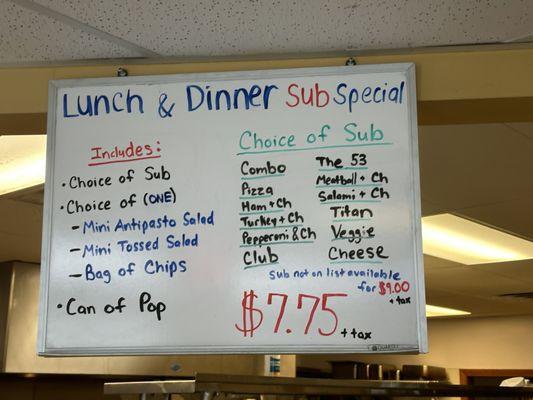 Lunch & Dinner Sub Special
Includes:
• Choice of Sub
• Choice of (ONE)
- Mini Antipasto Salad
- Mini Tossed Salad
- Bag of Chips
• Can of Pop
Choice of Sub
Combo
Pizza
Ham + Ch
Turkey + Ch
Pepperoni & Ch
Club
The 53
Meatball + Ch
Salami + Ch
Titan
Veggie
Cheese
Sub not on list available
for $9.00
+ tax
$7.75 + tax